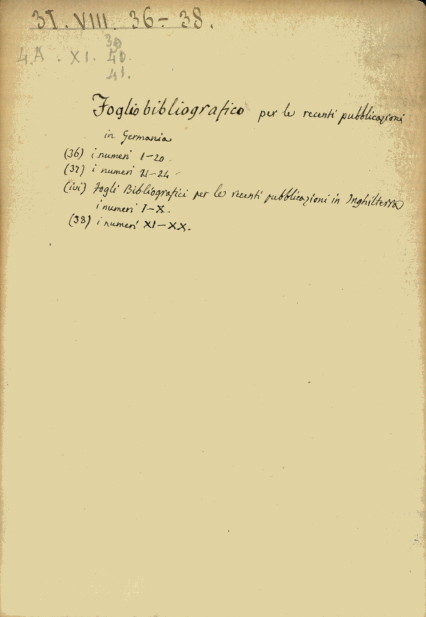 3T. VIII. 36-38.
39
4A. XI. 40.
41.
Foglio bibliografico per le recenti pubblicazioni
in Germania
(36) i numeri 1-20.
(37) i numeri 21-24
(ivi) Fogli Bibliografici per le recenti pubblicazioni in Inghilterra
i numeri I-X.
(38) i numeri XI-XX.